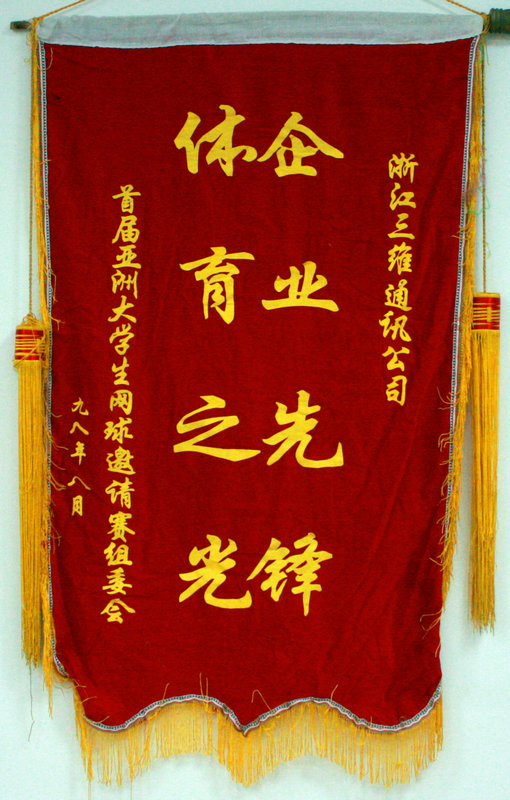 浙江三维通讯公司
企业先锋
体育之光
首届亚洲大学生网球邀请赛组委会
九八年八月